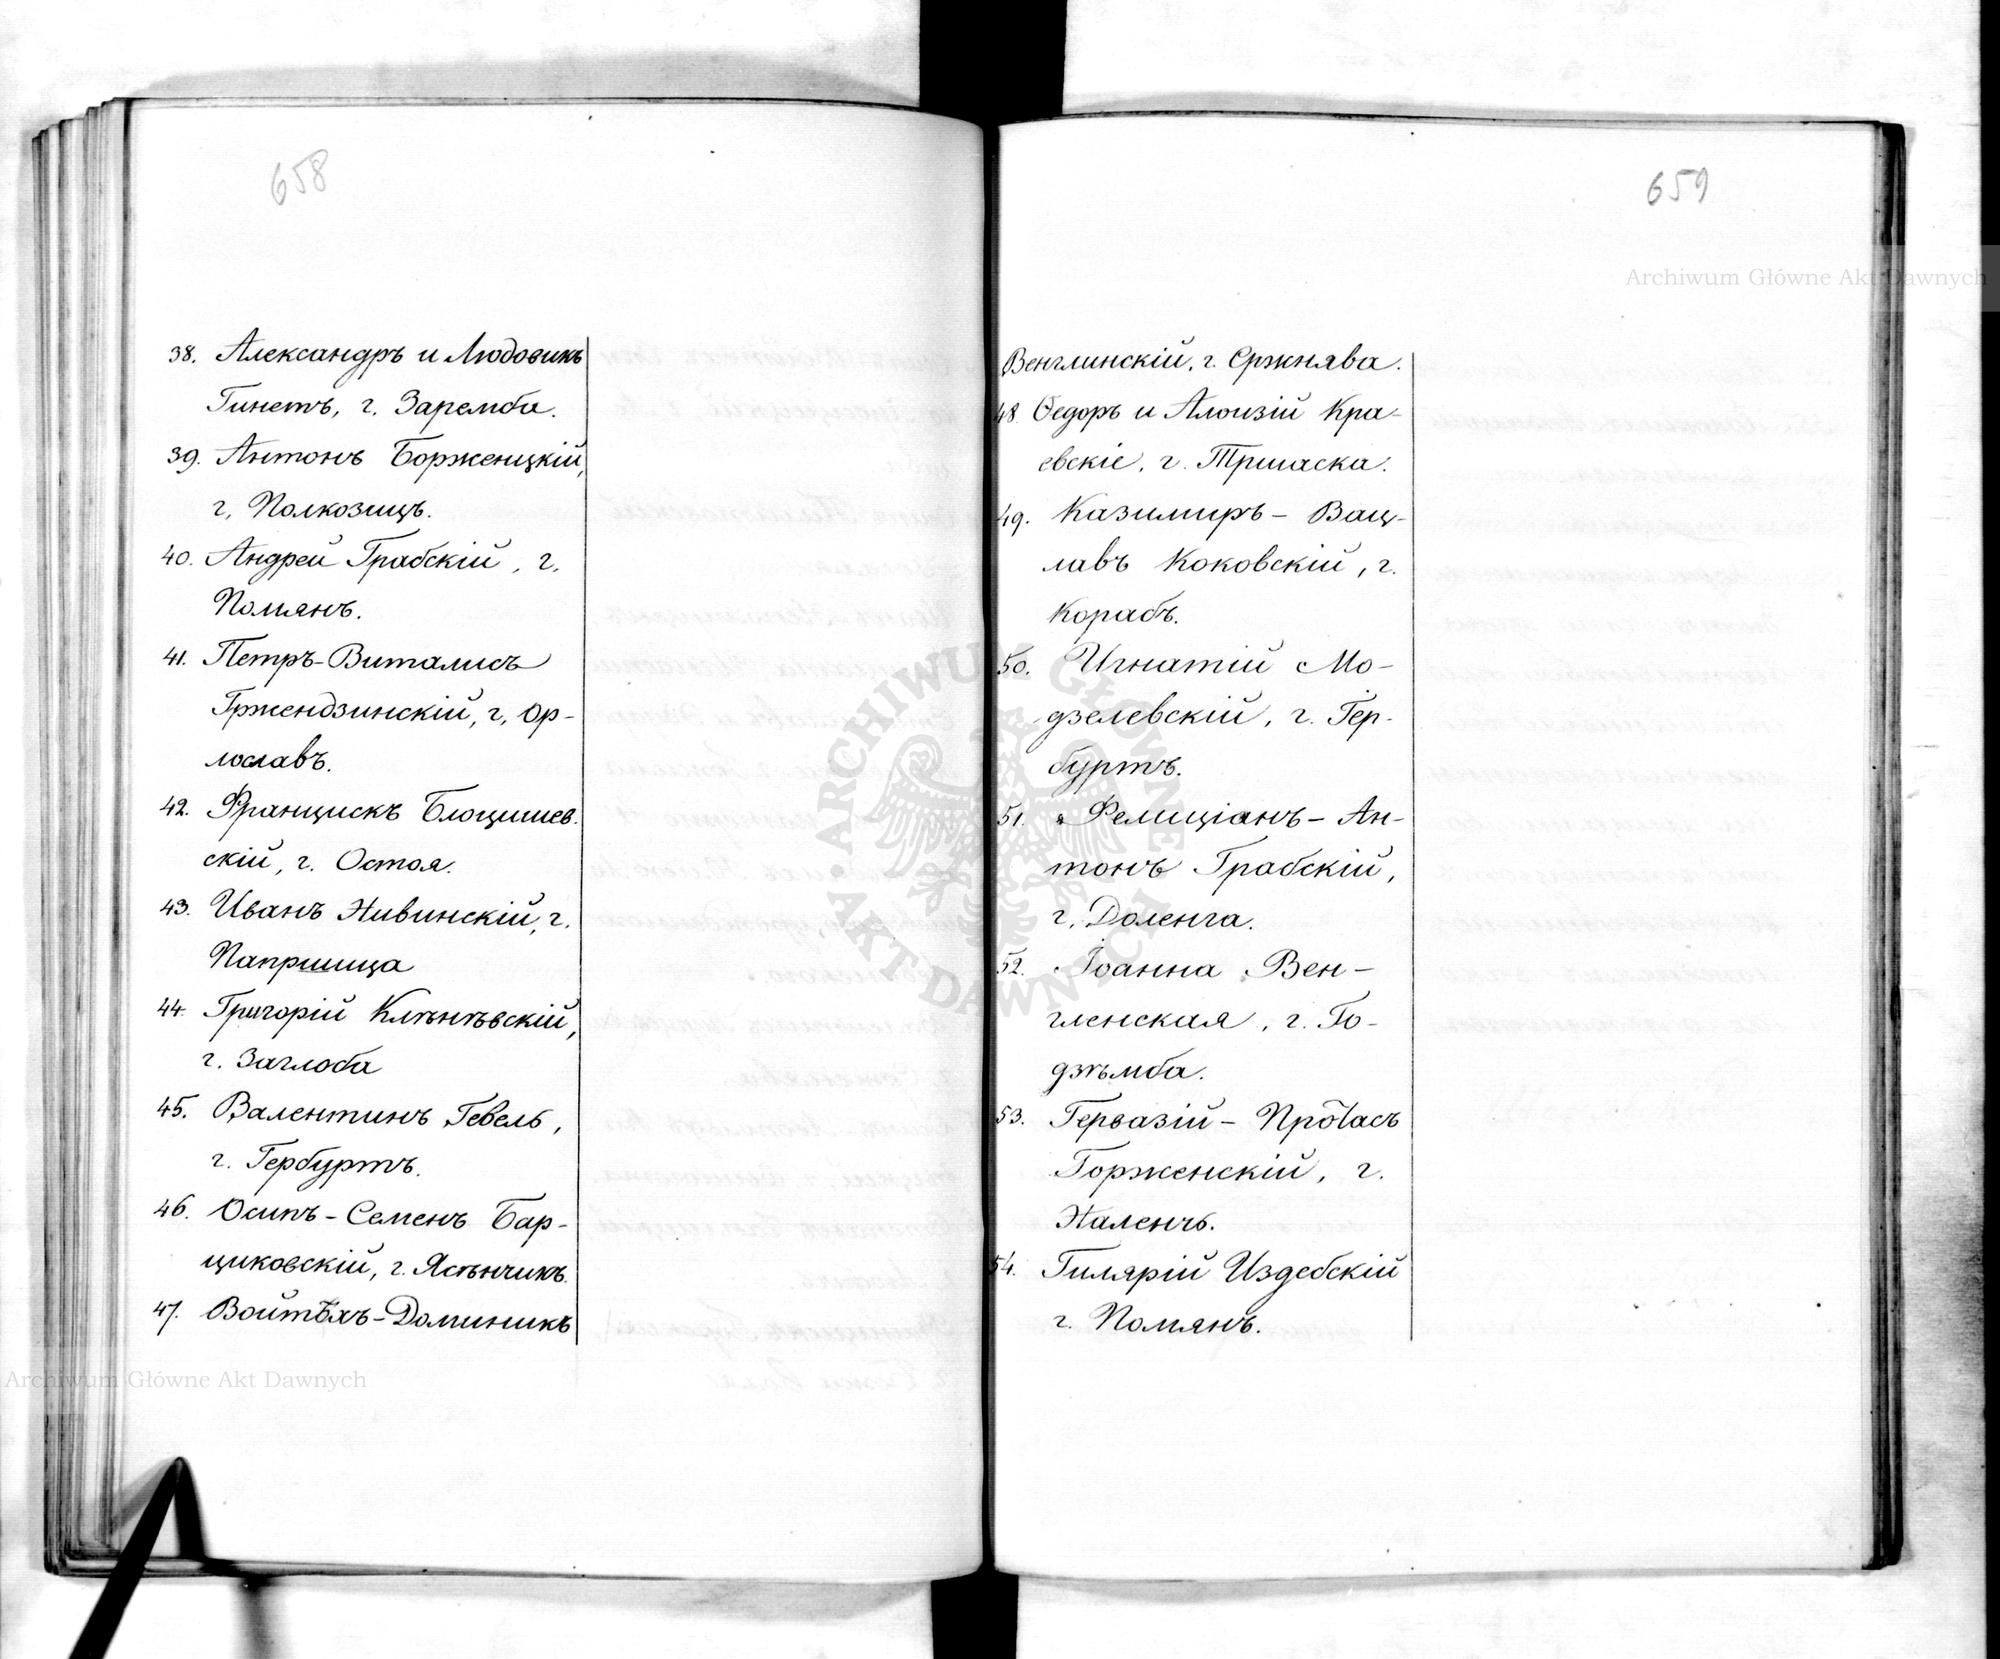 658
38. Александръ и Людовикъ
Гинетъ, г. Заремба.
39. Антонъ Борженцкій,
г. Полкозицъ.
40. Андрей Грабскій, г.
Помянъ.
41. Петръ-Виталисъ
Гржендзинскій, г. Ор-
лославъ.
42. Францискъ Блоцишев.
скій, г. Остоя.
43. Иванъ Нивинскій, г.
Папршица
44. Григорій Клѣнѣвскій,
г. Заглоба
45. Валентинъ Гевель,
г. Гербуртъ.
46. Осипъ-Семенъ Бар-
циковскій, г. Ясѣнчикъ.
47. Войтѣхъ-Доминикъ
659
Венглинскій, г. Сржнява.
48. Ѳедоръ и Алоизій Кра-
евскіе, г. Тршаска.
49. Казимиръ- Вац-
лавъ Коковскій, г.
Корабъ.
50. Игнатій Мо-
дзелевскій, г. Гер-
буртъ.
51. Фелиціанъ- Ан-
тонъ Грабскій,
г. Доленга.
52. Іоанна Вен-
гленская, г. Го-
дзѣмба.
53. Гервазій- Протасъ
Горженскій, г.
Наленчъ.
54. Гилярій Издебскій
г. Помянъ.
Archiwum Główne Akt Dawnych
Archiwum Główne Akt Dawnych
ARCHIWUM GŁÓWNE AKT DAWNYCH